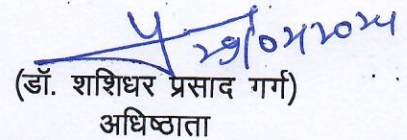 29/04/2024
(डॉ. शशिधर प्रसाद गर्ग)
अधिष्ठाता